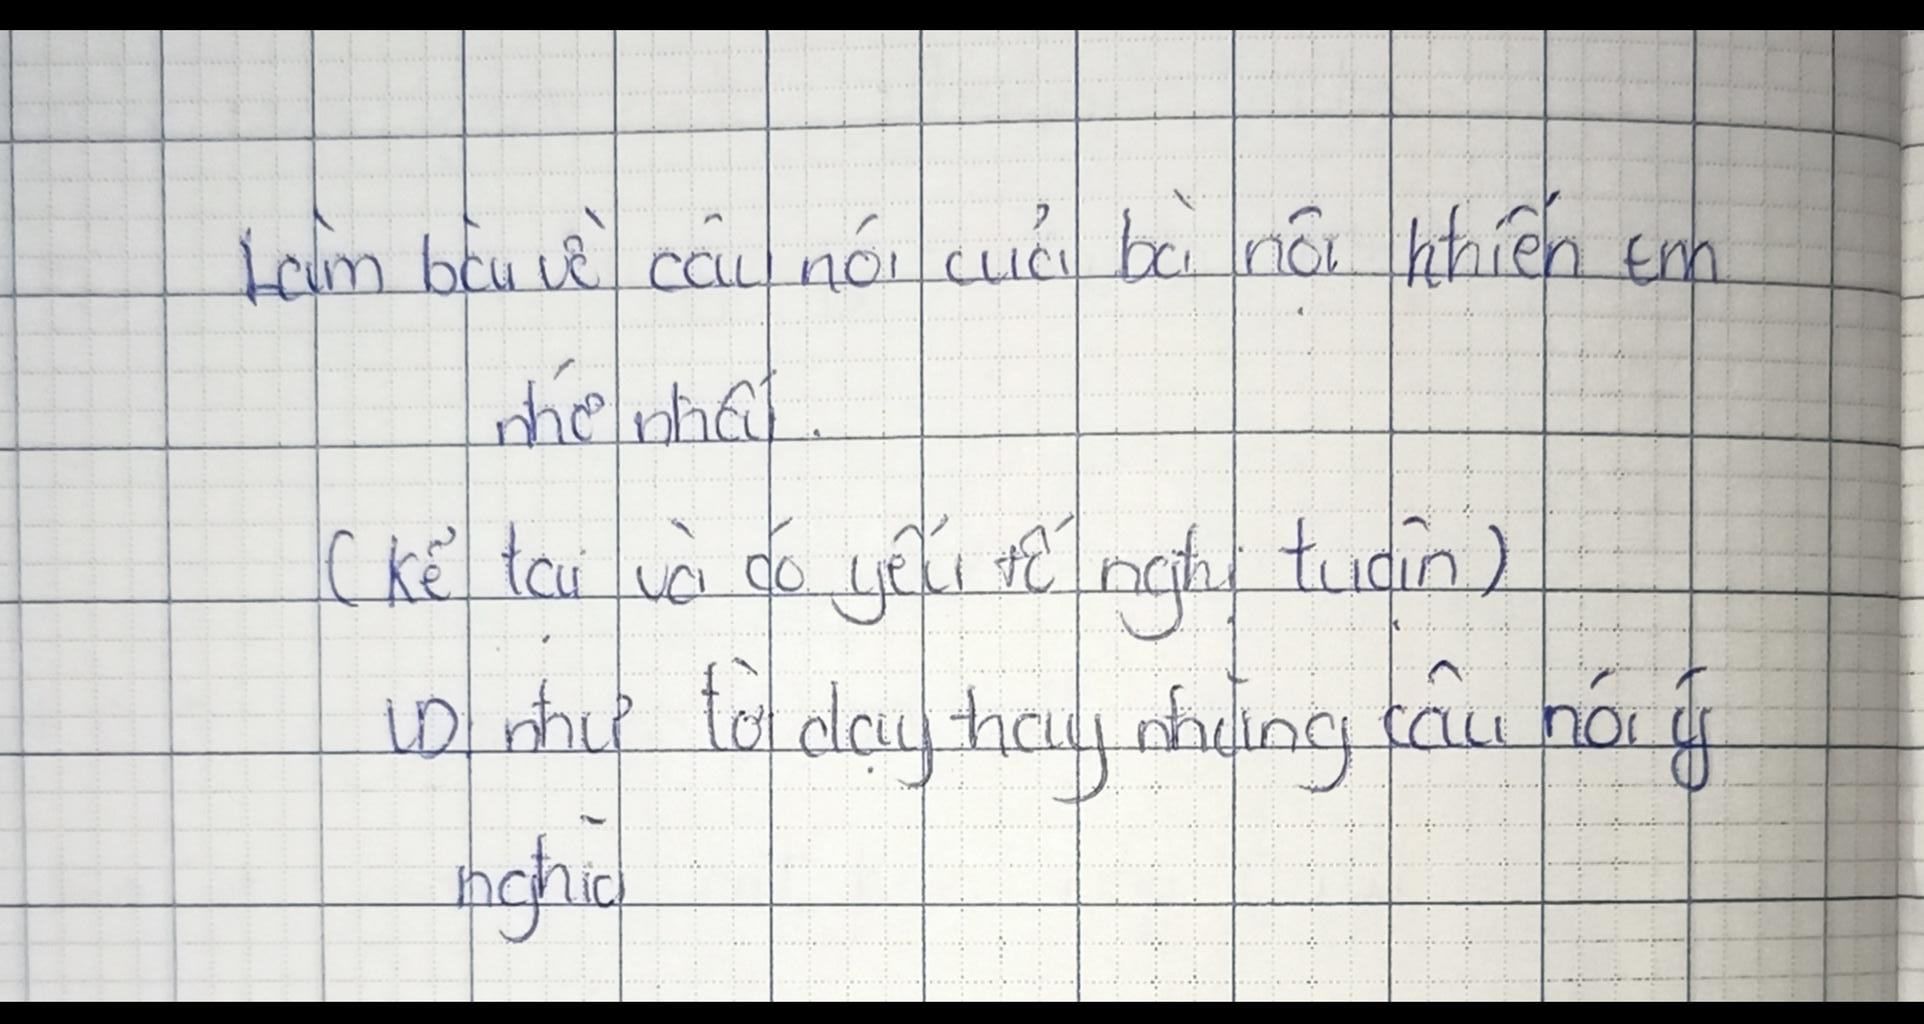 Làm bài về câu nói của bà nội khiến em
nhớ nhất.
(kể lại và có yếu tố nghị luận)
VD như lời dạy hay những câu nói ý
nghĩa